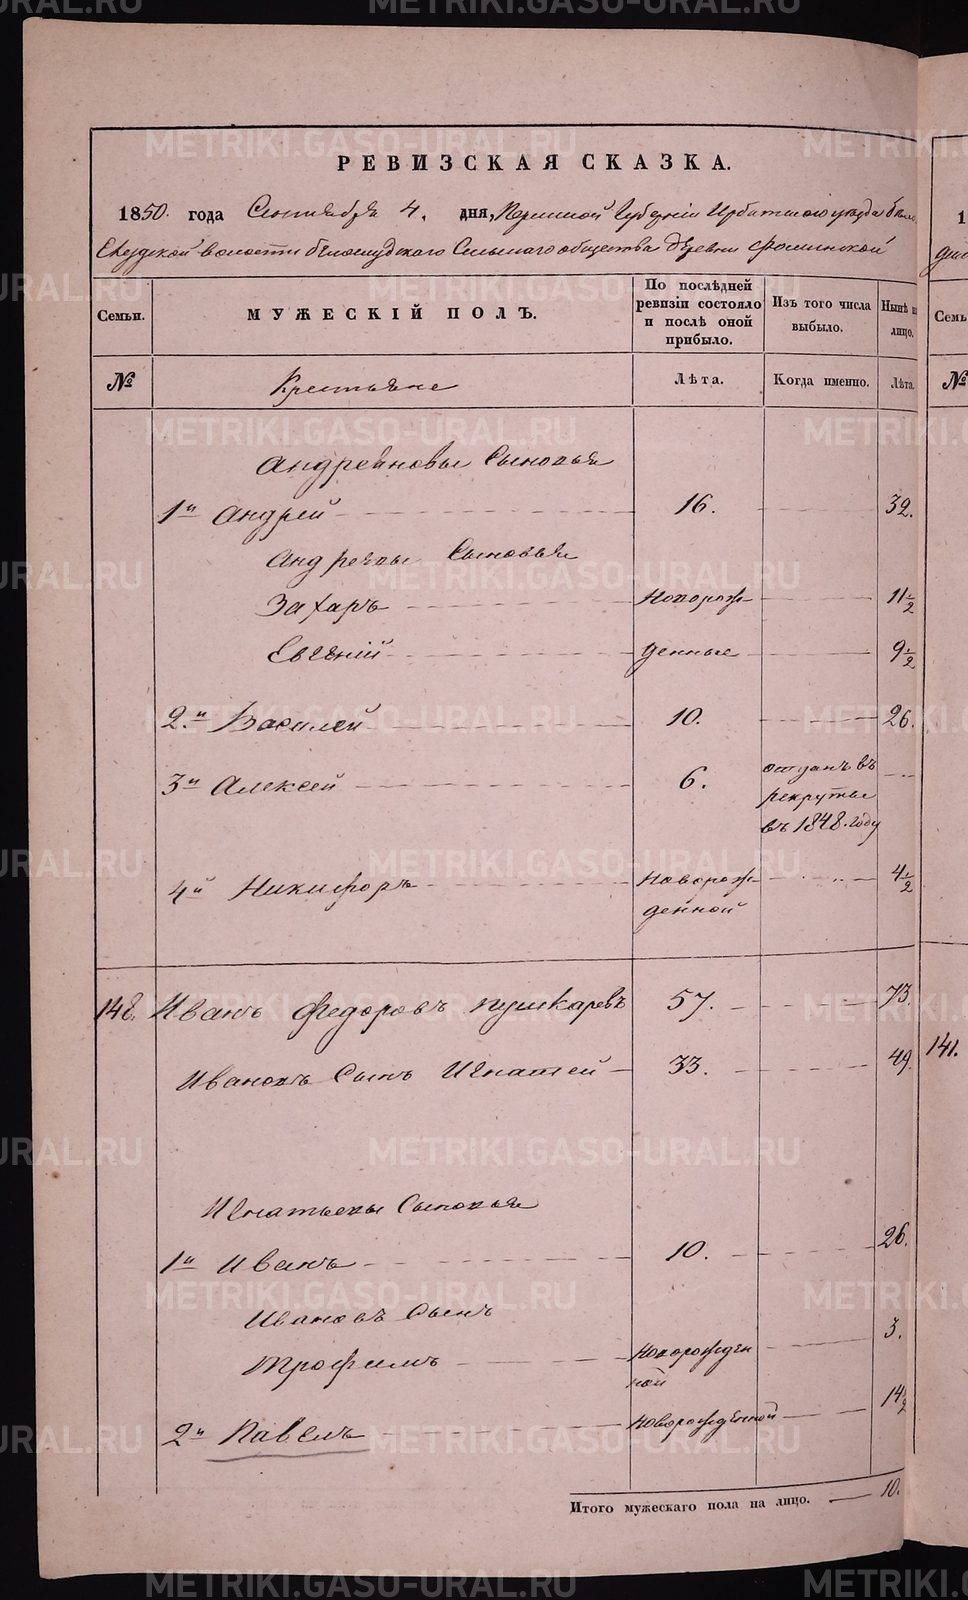 РЕВИЗСКАЯ СКАЗКА.
1850. года Сентября 4. дня, Пермской Губерніи Ирбитскаго уезда Бело
Слудской волости белослудскаго Сельскаго общества деревни Фоминской
Семьи.
МУЖЕСКІЙ ПОЛЪ.
По послѣдней ревизіи состояло и послѣ оной прибыло.
Изъ того числа выбыло.
Нынѣ на лицо.
№
Крестьяне
Лѣта.
Когда именно.
Лѣта.
Андреяновы Сыновья
1й Андрей 16. 32.
Андреевы Сыновья
Захаръ Новорож- 11½
Евгений денные 9½
2.й Василей 10. 26.
3й Алексей 6. отданъ въ
рекруты
въ 1848. году
4й Никифоръ Новорож- 4½
денной
148. Иванъ Федоровъ Пушкаревъ 57. 73.
Ивановъ Сынъ Игнатей 33. 49.
Игнатьевы Сыновья
1й Иванъ 10. 26.
Ивановъ Сынъ
Трофимъ Новорожден 3.
ной
2й Павелъ Новорожденной 14½
Итого мужескаго пола на лицо. 10.
1
Семь
№
141.
METRIKI.GASO-URAL.RU